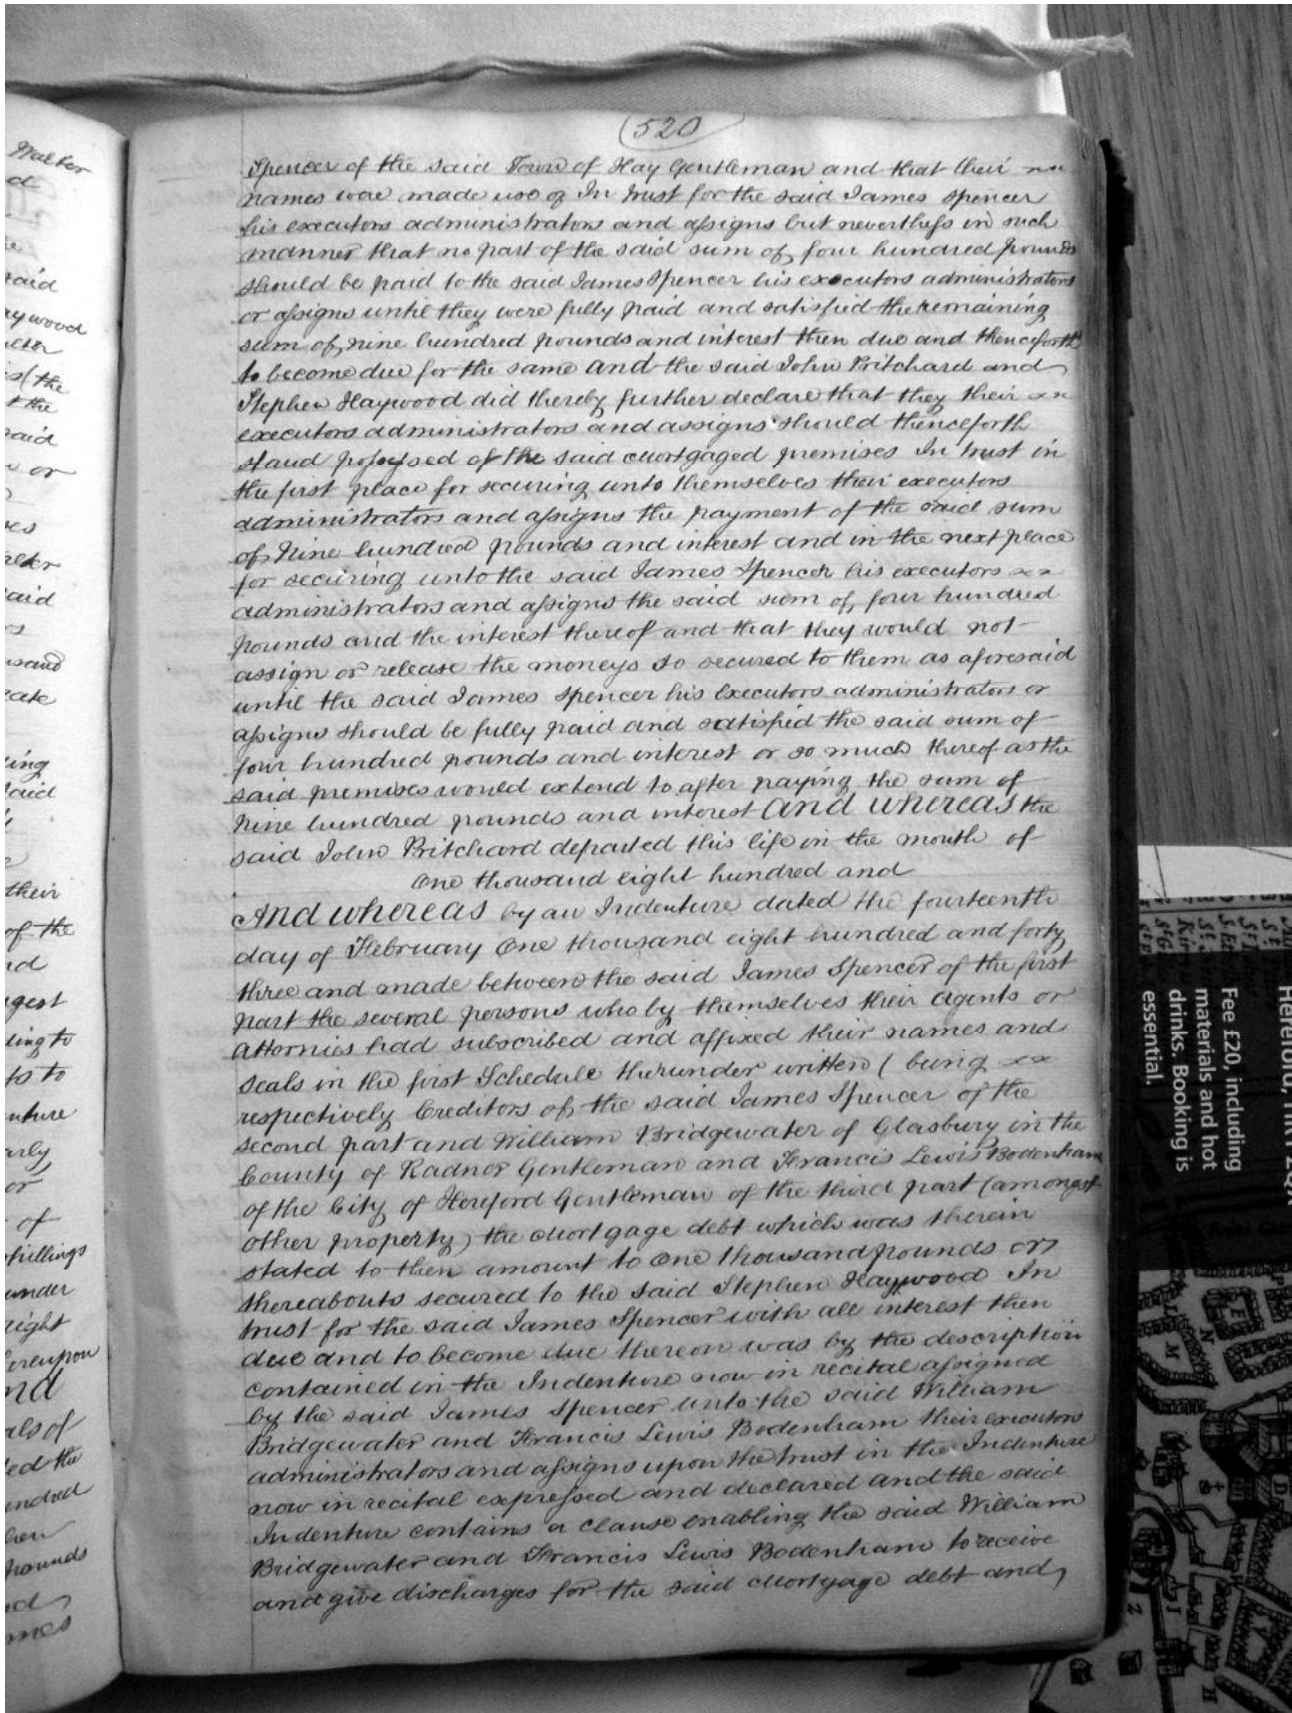 (520)
Spencer of the said Town of Hay Gentleman and that their
names were made use of In trust for the said James Spencer
his executors administrators and assigns but nevertheless in such
manner that no part of the said sum of four hundred pounds
should be paid to the said James Spencer his executors administrators
or assigns until they were fully paid and satisfied the remaining
sum of nine hundred pounds and interest then due and thenceforth
to become due for the same and the said John Pritchard and
Stephen Haywood did thereby further declare that they their
executors administrators and assigns should thenceforth
stand possessed of the said mortgaged premises In trust in
the first place for securing unto themselves their executors
administrators and assigns the payment of the said sum
of Nine hundred pounds and interest and in the next place
for securing unto the said James Spencer his executors
administrators and assigns the said sum of four hundred
pounds and the interest thereof and that they would not
assign or release the moneys so secured to them as aforesaid
until the said James Spencer his Executors administrators or
assigns should be fully paid and satisfied the said sum of
four hundred pounds and interest or so much thereof as the
said premises would extend to after paying the sum of
Nine hundred pounds and interest and whereas the
said John Pritchard departed this life in the month of
One thousand eight hundred and
And whereas by an Indenture dated the fourteenth
day of February One thousand eight hundred and forty
three and made between the said James Spencer of the first
part the several persons who by themselves their agents or
Attornies had subscribed and affixed their names and
seals in the first Schedule therunder written (being
respectively Creditors of the said James Spencer of the
second part and William Bridgewater of Glasbury in the
County of Radnor Gentleman and Francis Lewis Bodenham
of the City of Hereford Gentleman of the third part (amongst
other property) the Mortgage debt which was therein
stated to then amount to One thousand pounds or
thereabouts secured to the said Stephen Haywood In
trust for the said James Spencer with all interest then
due and to become due thereon was by the description
contained in the Indenture now in recital assigned
by the said James Spencer unto the said William
Bridgewater and Francis Lewis Bodenham their executors
administrators and assigns upon the trust in the Indenture
now in recital expressed and declared and the said
Indenture contains a clause enabling the said William
Bridgewater and Francis Lewis Bodenham to receive
and give discharges for the said Mortgage debt and
Walter
said
aywood
the
the
said
or
said
their
of the
to
of
under
of
the
Hereford,
Fee £20, including
materials and hot
drinks. Booking is
essential.